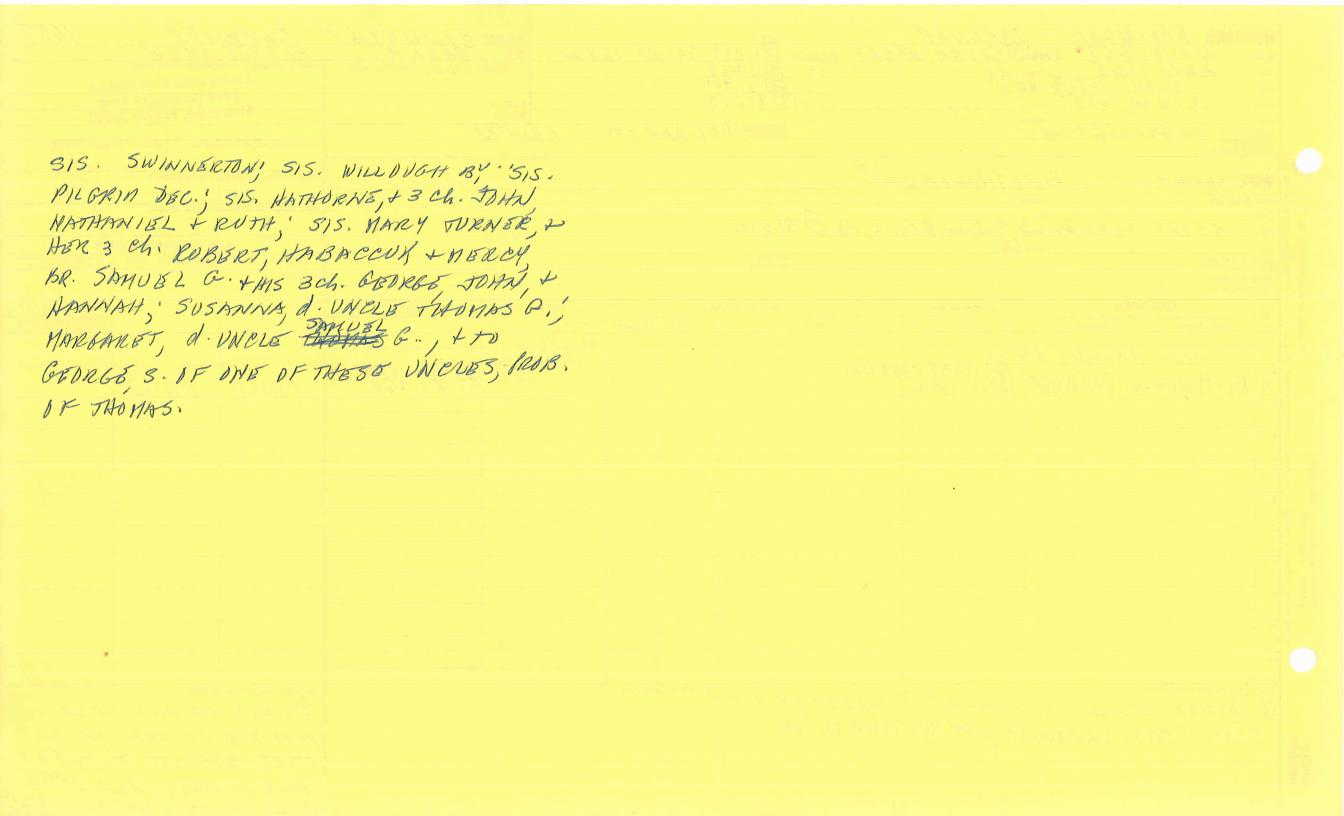 SIS. SWINNERTON; SIS. WILLOUGHBY; "SIS.
PILGRIM DEC.; SIS. HATHORNE, + 3 ch. JOHN,
NATHANIEL + RUTH; SIS. MARY TURNER, +
HER 3 ch. ROBERT, HABACCUK + MERCY,
BR. SAMUEL G. + HIS 3 ch. GEORGE, JOHN, +
HANNAH; SUSANNA, d. UNCLE THOMAS G.;
MARGARET, d. UNCLE SAMUEL G., + TO
GEORGE, S. OF ONE OF THESE UNCLES, PROB.
OF THOMAS.